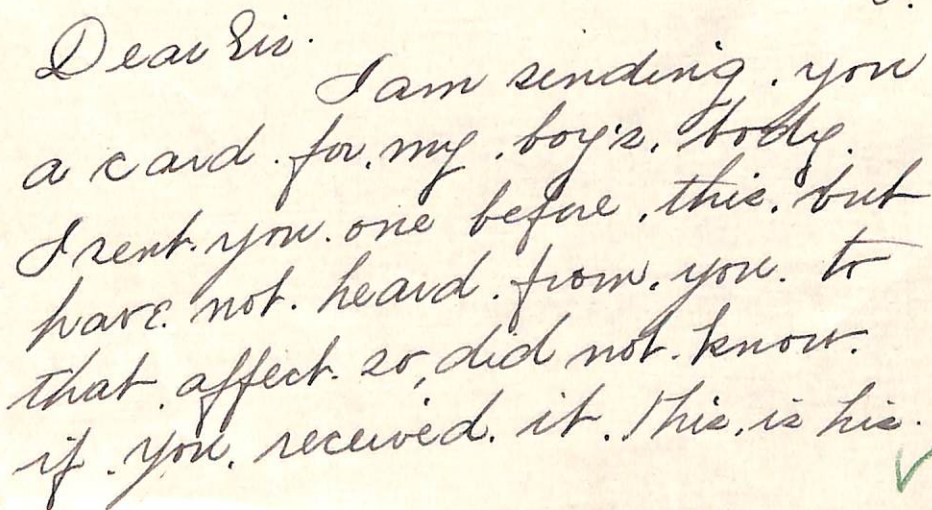 Dear Sir.
I am sending. you
a card. for. my. boy's. body.
I sent. you. one before. this. but
have. not. heard. from. you. to
that. affect. so, did not. know.
if. you. received. it. This. is his.